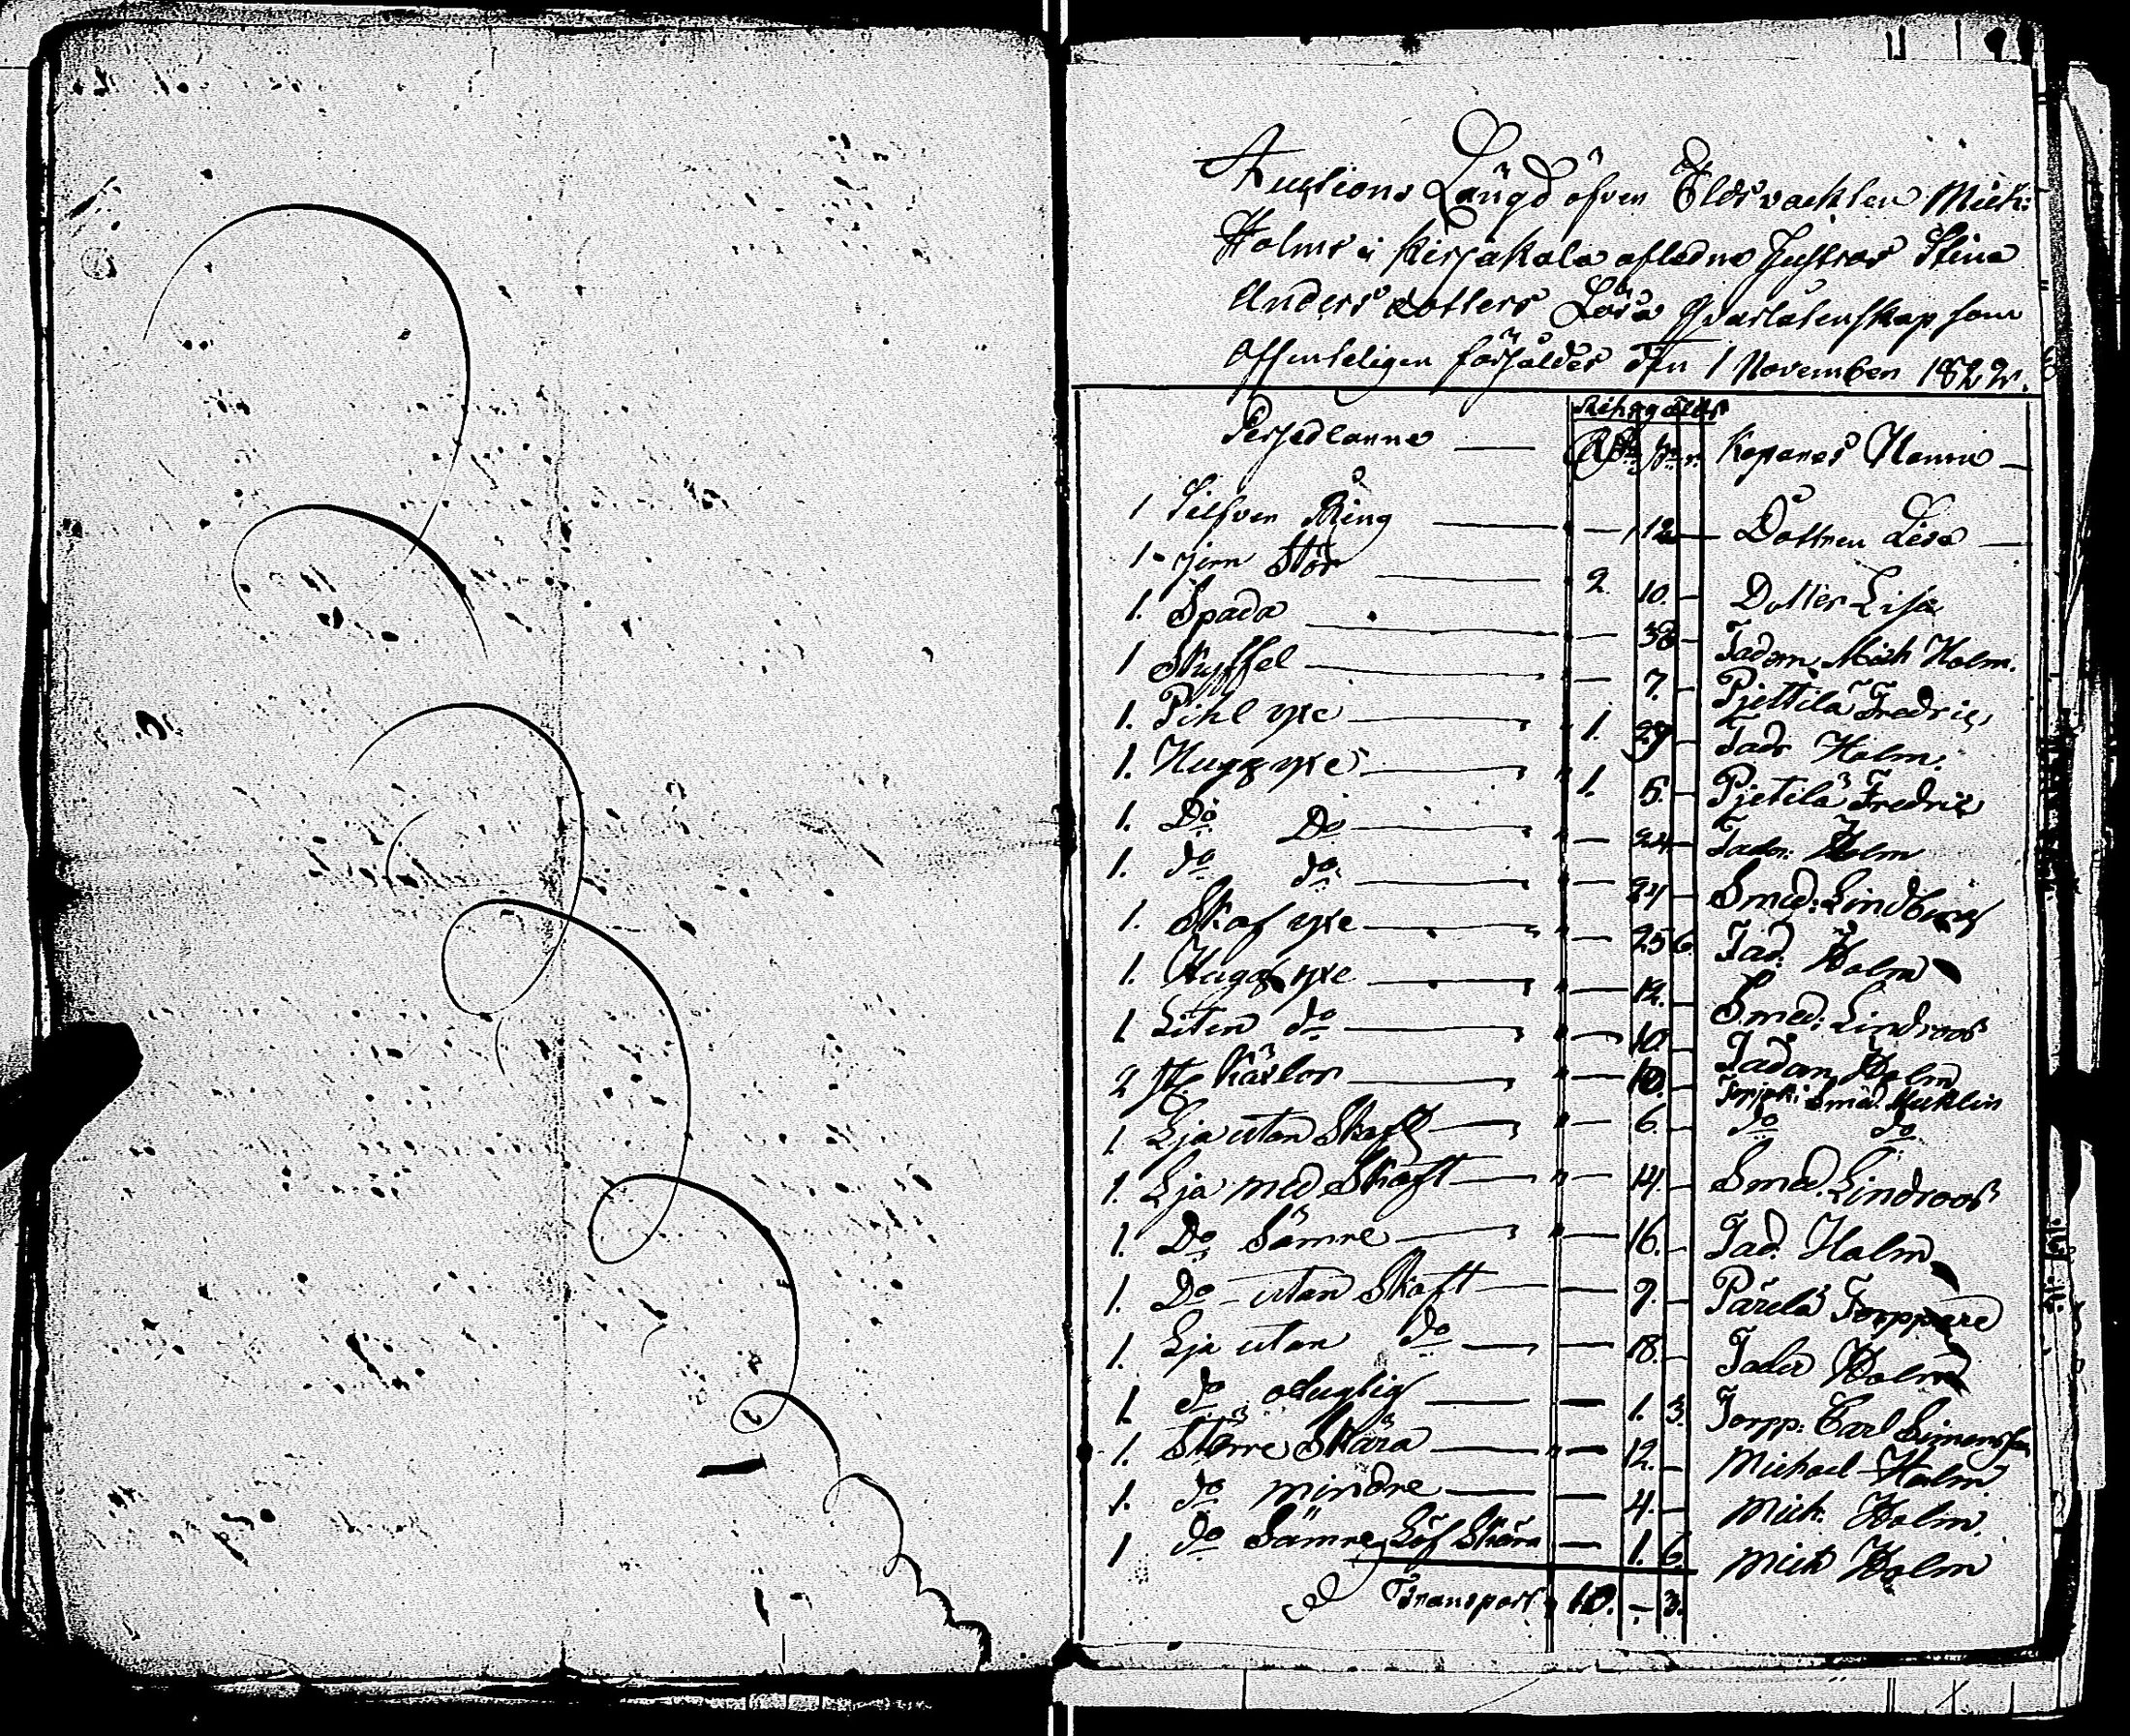 Auctions Längd öfver Eldsvackten Mich:
Holms i Kirjakala afledne Hustrus Stina
Anders dotters Lösa Qvarlatenskap som
Offenteligen försåldes den 1 November 1822.
Persedlarne — Riksgälds Rd s. r. Köpares Namn —
1 Silfver Ring — — 12 — Dottren Lisa —
1 jern Stör — 2. 10. — Dotter Lisa
1. Spada — — 38 — Fadern Mich Holm.
1 Skyffel — — 7. — Pjettilä Fredric
1. Pihl yxe — 1. 29 — Fadr Holm.
1. Hugg yxe — 1. 5. — Pjetilä Fredric
1. Do Do — — 24 — Fader Holm
1. do do — — 24 — Smed: Lindberg
1. Skaf yxe — — 25 6. Fad. Holm
1. Hugg yxe — — 12. — Smed: Lindroos
1 Liten do — — 10 — Fadern Holm
2 st. Kärlor — — 10. — Smed. Mecklin
1. Lja utan Skaft — — 6. — do do
1. Lja med Skaft — — 14. — Smed. Lindroos
1. Do Sämre — — 16. — Fad. Holm
1. Do utan Skaft — — 9. — Pärelä Torppare
1. Lja utan do — — 18. — Fader Holm
1. do oduglig — — 1. 3. Torpp: Carl Simonsson
1. Större Skära — — 12. — Michael Holm
1. do mindre — — 4. — Mich. Holm.
1 do Sämre Löf Skära — 1. 6. Mich Holm
Transport 10. — 3.